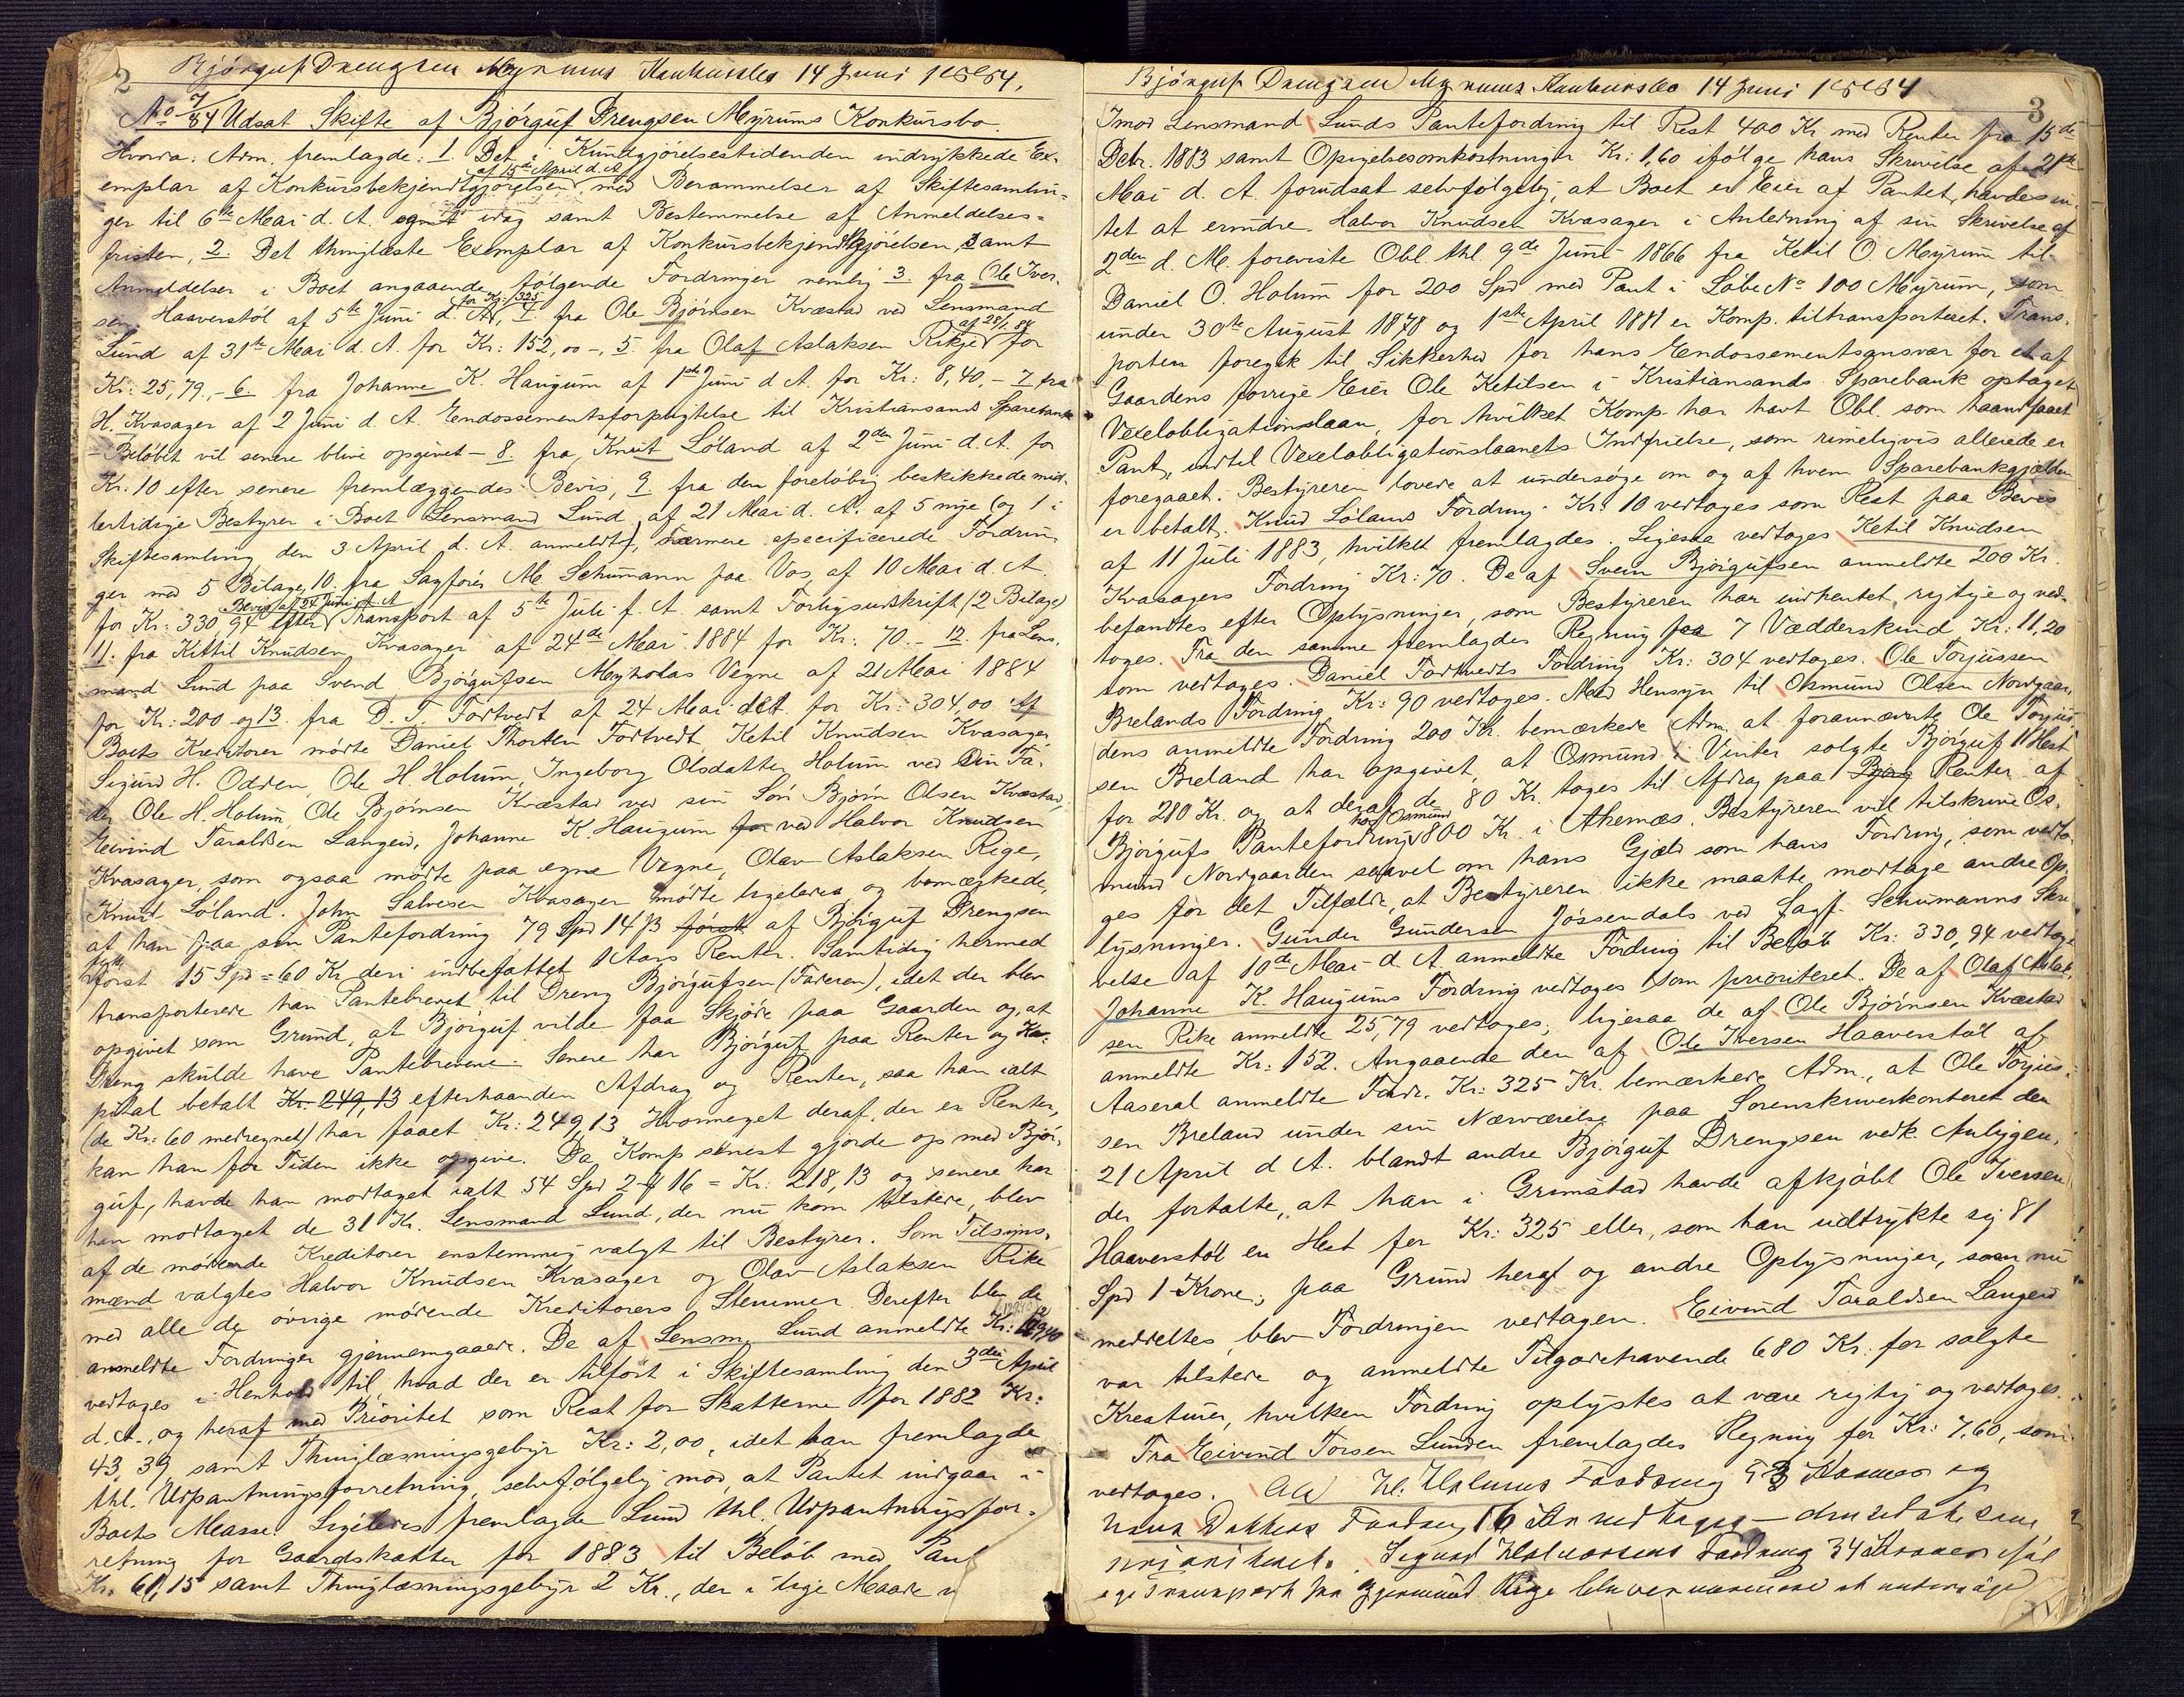 2
Bjørguf Drengsen Myrums Konkursbo 14 Juni 1884.
No 7/84 Udsat Skifte af Bjørguf Drengsen Myrums Konkursbo.
Hvorda: Adm. fremlagde: 1. Det i Kundgjørelsestidenden indrykkede Ex-
af 15de April d. A.
emplar af Konkursbekjendtgjørelsen med Berammelser af Skiftesamlin-
ger til 6te Mai d. A. idag samt Bestemmelse af Anmeldelses-
fristen, 2. Det thinglæste Exemplar af Konkursbekjendtgjørelsen, samt
Anmeldelser i Boet angaaende følgende Fordringer nemlig 3. fra Ole Iver-
for Kr: 325
sen Haaverstøl af 5te Juni d. A., 4. fra Ole Bjørnsen Kvæstad ved Lensmand
af 28/5 84
Lund af 31te Mai d. A. for Kr: 152,00 -, 5. fra Olaf Aslaksen Rikje for
Kr: 25,79, - 6. fra Johanne K. Haugum af 1ste Juni d A. for Kr: 8,40, - 7. fra
H. Kvasager af 2 Juni d. A. Endossementsforpligtelse til Kristiansands Sparebank
- Beløbet vil senere blive opgivet - 8. fra Knut Løland af 2den Juni d. A. for
Kr: 10 efter senere fremlæggendes Bevis, 9. fra den foreløbig beskikkede mid-
lertidige Bestyrer i Boet Lensmand Lund af 21 Mai d. A. af 5 nye (og 1 i
Skiftesamling den 3 April d. A. anmeldt), nærmere specificerede Fordrin-
ger med 5 Bilage, 10. fra Sagfører M. Schumann paa Vos, af 10 Mai d. A.
Bevis af 24 Juni f. A.
for Kr: 330,94 efter Transport af 5te Juli f. A. samt Forligsudskrift (2 Bilage)
11. fra Kittil Knudsen Kvasager af 24de Mai 1884 for Kr: 70. - 12. fra Lens-
mand Lund paa Svend Bjørgufsen Myholas Vegne af 21 Mai 1884
for Kr: 200 og 13. fra D. T. Førtvedt af 24 Mai d. A. for Kr: 304,00. Af
Boets Kreditorer mødte Daniel Thorsten Førtvedt, Ketil Knudsen Kvasager,
Sigurd H. Odden, Ole H. Holum, Ingeborg Olsdatter Holum ved sin Fa-
der Ole H. Holum, Ole Bjørnsen Kvæstad ved sin Søn Bjørn Olsen Kvæstad,
Eivind Taraldsen Langeid, Johanne K Haugum for ved Halvor Knudsen
Kvasager, som ogsaa mødte paa egne Vegne, Olav Aslaksen Rige,
Knud Løland. John Salvesen Kvasager mødte ligeledes og bemærkede,
at han paa sin Pantefordring 79 Spd 14 β først af Bjørguf Drengsen
først 15 Spd = 60 Kr deri indbefattet 1 Aars Renter. Samtidig hermed
transporterede han Pantebrevet til Dreng Bjørgufsen (Faderen), idet der blev
opgivet som Grund, at Bjørguf vilde faa Skjøde paa Gaarden og at
Dreng skulde have Pantebrevene. Senere har Bjørguf paa Renter og Ka-
pital betalt Kr. 249,13 efterhaanden Afdrag og Renter, saa han ialt
(de Kr: 60 medregnet) har faaet Kr: 249,13 Hvormeget deraf, der er Renter,
kan han for Tiden ikke opgive. Da Komp senest gjorde op med Bjør-
guf, havde han modtaget ialt 54 Spd 2 ‑ 16 = Kr: 218,13 og senere har
han modtaget de 31 Kr. Lensmand Lund, der nu kom tilstede, blev
af de mødende Kreditorer enstemmig valgt til Bestyrer. Som Tilsyns-
mænd valgtes Halvor Knudsen Kvasager og Olav Aslaksen Rike
med alle de øvrige mødende Kreditorers Stemmer. Derefter blev de
anmeldte Fordringer gjennemgaaede. De af Lensm. Lund anmeldte Kr:
vedtoges i Henhold til, hvad der er tilført i Skiftesamling den 3die April
d. A., og heraf med Prioritet som Rest for Skatterne for 1882 Kr:
43,39 samt Thinglæsningsgebyr Kr: 2,00, idet han fremlagde
thl. Udpantningsforretning, selvfølgelig mod, at Pantet indgaar i
Boets Masse. Ligeledes fremlagde Lund thl. Udpantningsfor-
retning for Gaardskatter for 1883 til Beløb med Pant
Kr. 61,15 samt Thinglæsningsgebyr 2 Kr., der i lige Maade
Bjørguf Drengsen Myrums Konkursbo 14 Juni 1884
3
Imod Lensmand Lunds Pantefordring til Rest 400 Kr med Renter fra 15de
Debr. 1883 samt Opsigelsesomkostninger Kr: 1,60 ifølge hans Skrivelse af 21de
Mai d. A. forudsat selvfølgelig, at Boet er Eier af Pantet, havdes in-
tet at erindre. Halvor Knudsen Kvasager i Anledning af sin Skrivelse af
2den d. M. foreviste Obl. thl. 9de Juni 1866 fra Ketil O. Myrum til
Daniel O. Holum for 200 Spd med Pant i Løbe No 100 Myrum, som
under 30te August 1878 og 1ste April 1881 er Komp. tiltransporteret. Trans-
porten foregik til Sikkerhed for hans Endossementsansvar for et af
Gaardens forrige Eier Ole Ketilsen i Kristiansands Sparebank optaget
Vexelobligationslaan, for hvilket Komp. har havt Obl. som haandfaaet
Pant, indtil Vexelobligationslaanets Indfrielse, som rimeligvis allerede er
foregaaet. Bestyreren lovede at undersøge om og af hvem Sparebankgjælden
er betalt. Knud Lølands Fordring Kr: 10 vedtoges som Rest paa Bevis
af 11 Juli 1883, hvilket fremlagdes. Ligesaa vedtoges Ketil Knudsen
Kvasagers Fordring Kr: 70. De af Svein Bjørgufsen anmeldte 200 Kr.
befandtes efter Oplysninger, som Bestyreren har indhentet, rigtige og ved-
toges. Fra den samme fremlagdes Regning paa 7 Vædderskind Kr: 11,20
som vedtoges. Daniel Førtvedts Fordring Kr: 304 vedtoges. Ole Torjussen
Brelands Fordring Kr: 90 vedtoges. Med Hensyn til Osmund Olsen Nordgaar-
dens anmeldte Fordring 200 Kr. bemærkede Adm. at forannævnte Ole Torjus-
sen Breland har opgivet, at Osmund i Vinter solgte Bjørguf 1 Hest
for 280 Kr. og at deraf de 80 Kr. toges til Afdrag paa Renter af
hos Osmund
Bjørgufs Pantefordring 800 Kr. i Aknæs. Bestyreren vil tilskrive Os-
mund Nordgaarden saavel om hans Gjæld som hans Fordring, som vedto-
ges for det Tilfælde, at Bestyreren ikke maatte modtage andre Op-
lysninger. Gunder Gundersen Jøssendals ved Sagf. Schumanns Skri-
velse af 10de Mai d. A. anmeldte Fordring til Beløb Kr: 330,94 vedtoges
Johanne K. Haugums Fordring vedtoges som prioriteret. De af Olaf Aslak-
sen Rike anmeldte 25,79 vedtoges, ligesaa de af Ole Bjørnsen Kvæstad
anmeldte Kr: 152. Angaaende den af Ole Iversen Haaverstøl af
Aaseral anmeldte Fordr. Kr: 325 Kr. bemærkede Adm., at Ole Torjus-
sen Breland under sin Nærværelse paa Sorenskriverkontoret den
21 April d A. blandt andre Bjørguf Drengsen vedk. Anliggen-
der fortalte, at han i Grimstad havde afkjøbt Ole Iversen
Haaverstøl en Hest for Kr: 325 eller, som han udtrykte sig 81
Spd 1 Krone; paa Grund heraf og andre Oplysninger, som nu
meddeltes, blev Fordringen vedtagen. Eivind Taraldsen Langeid
var tilstede og anmeldte Tilgodehavende 680 Kr: for solgte
Kreaturer, hvilken Fordring oplystes at være rigtig og vedtoges.
Fra Eivind Torsen Lunden fremlagdes Regning for Kr: 7,60, som
vedtoges. Ole H. Holums Fordring 73 Kroner og
hans Datters Fordring 16 Kr vedtages — den sidste som
prioriteret. Sigurd Halvorsens Fordring 34 Kroner iføl
ge Transport fra Gjermund Rige